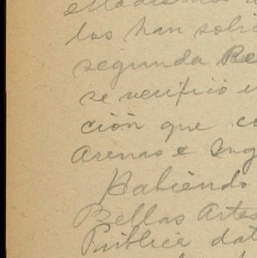 estadísmo
los han soli
segunda Re
se verificó u
ción que co
Arenas e Ing
Habiendo
Bellas Artes
Publica dat